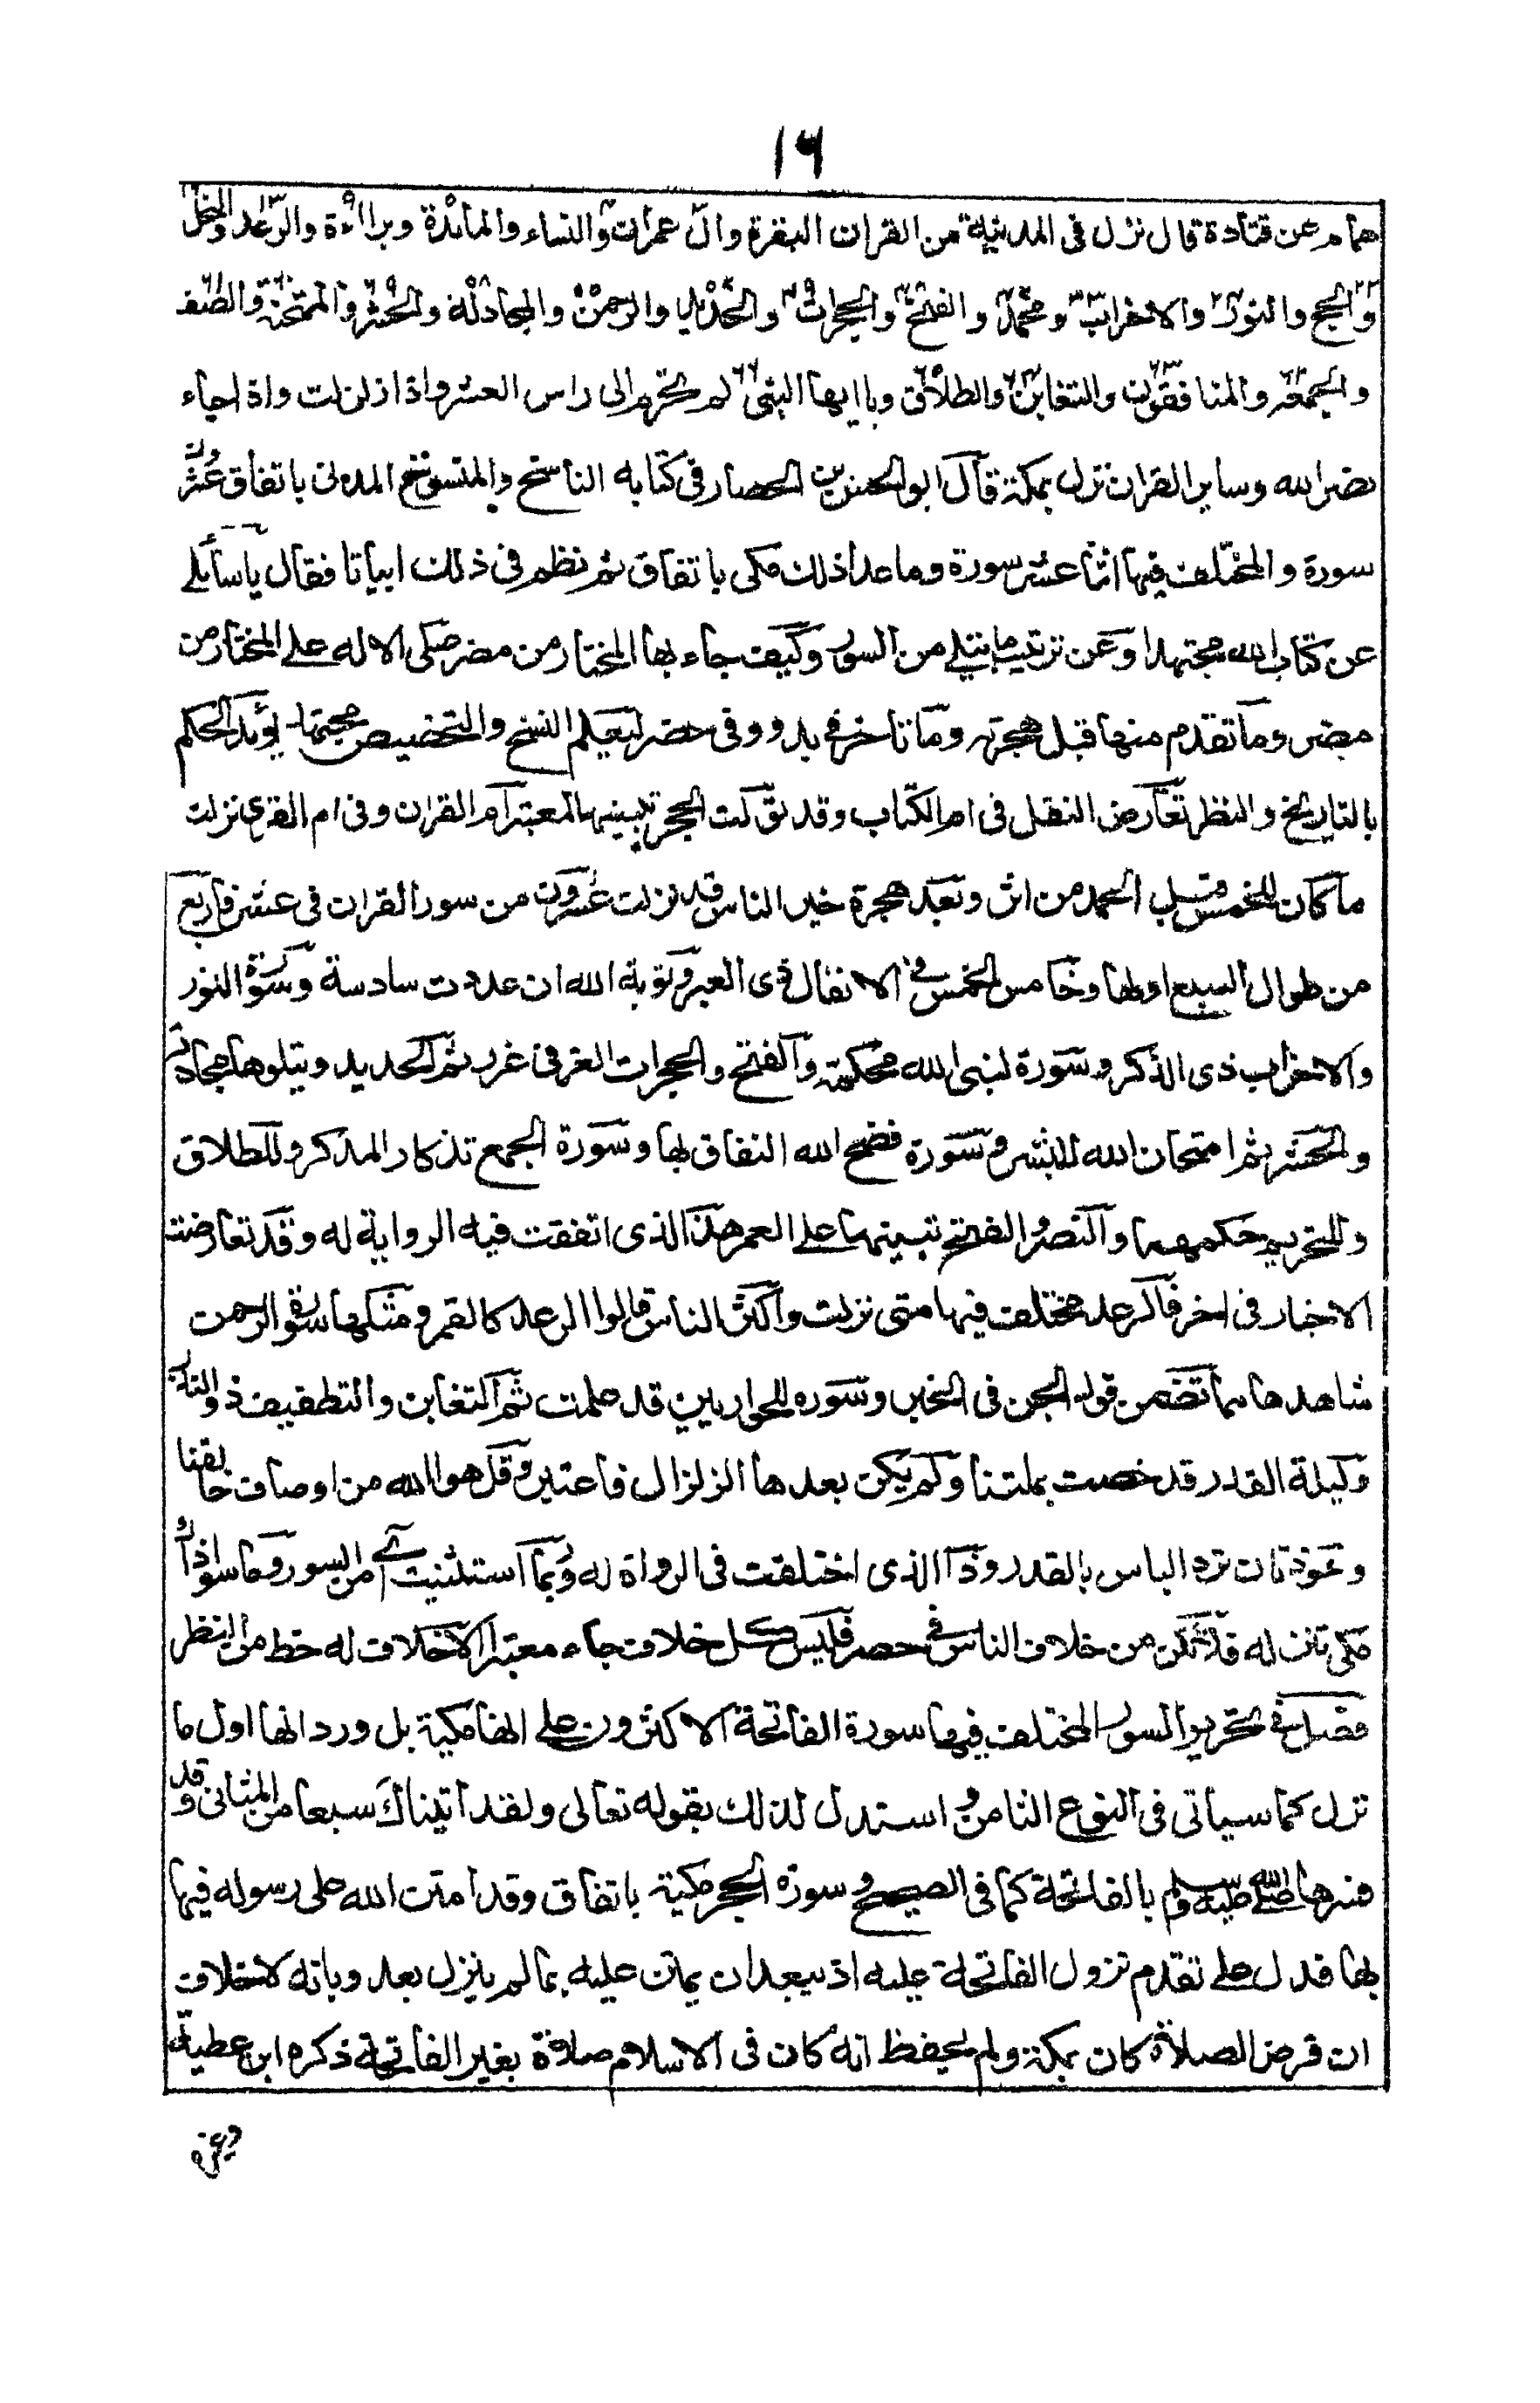 ١٦
همام عن قتادة قال نزل فى المدينة من القران البقرة وال عمران والنساء والمائدة وبراءة والرعد والنحل
والحج والنور والاحزاب ومحمد والفتح والحجرات والحديد والرحمن والمجادلة والحشر والممتحنة والصف
والجمعة والمنافقون والتغابن والطلاق وياايها النبى لم تحرم الى راس العشر واذا زلزلت واذا جاء
نصر الله وساير القران نزل بمكة قال ابو الحسن بن الحصار فى كتابه الناسخ والمنسوخ المدنى باتفاق عشرون
سورة والمختلف فيها اثنا عشر سورة وما عدا ذلك مكى باتفاق ثم نظم فى ذلك ابياتا فقال ياسائلے
عن كتاب الله مجتهدا وعن ترتيب ما يتلے من السور وكيف جاء بها المختار من مضر صلى الاله علے المختار من
مضر وما تقدم منها قبل هجرته وما تاخر فے بدو وفى حضر ليعلم النسخ والتخصيص مجتهد يؤيد الحكم
بالتاريخ والنظر تعارض النقل فى ام الكتاب وقد تؤلت الحجر تنبيها لمعتبر ام القران وفى ام القرى نزلت
ما كان للخمس قبل الحمد من اثر وبعد هجرة خير الناس قد نزلت عشرون من سور القران فى عشر فاربع
من طوال السبع اولها وخامس الخمس فى الانفال ذى العبر وتوبة الله ان عددت سادسة وسورة النور
والاحزاب ذى الذكر وسورة لنبى الله محكمة والفتح والحجرات الغر فى غرر ثم الحديد ويتلوها مجادلة
والحشر ثم امتحان الله للبشر وسورة فضح الله النفاق بها وسورة الجمع تذكار المدكر وللطلاق
وللتحريم حكمهما والنصر والفتح تنبيها علے العمر هذا الذى اتفقت فيه الرواية له وقد تعارضت
الاخبار فى اخر فالرعد مختلف فيها متى نزلت واكثر الناس قالوا الرعد كالقمر ومثلها سورة الرحمن
شاهدها مما تضمن قول الجن فى الخبر وسورة للحواريين قد علمت ثم التغابن والتطفيف ذو النذر
وليلة القدر قد خصت بملتنا ولم يكن بعدها الزلزال فاعتبر وقل هو الله من اوصاف خالقنا
وعوذتان ترد الباس بالقدر وذا الذى اختلفت فى الرواة له وربما استثنيت آے من السور وما سوا ذاك
مكى تنزله فلا تكن من خلاف الناس فى حصر فليس كل خلاف جاء معتبرا الا خلاف له حظ من النظر
فصل فے تحرير السور المختلف فيها سورة الفاتحة الاكثرون علے انها مكية بل ورد انها اول ما
نزل كما سياتى فى النوع الثامن و استدل لذلك بقوله تعالى ولقد اتيناك سبعا من المثانى وقد
فسرها صلى الله عليه وسلم بالفاتحة كما فى الصحيح و سورة الحجر مكية باتفاق وقد امتن الله على رسوله فيها
بها فدل علے تقدم نزول الفاتحة عليه اذ يبعد ان يمتن عليه بما لم ينزل بعد وبانه لاخلاف
ان فرض الصلاة كان بمكة ولم يحفظ انه كان فى الاسلام صلاة بغير الفاتحة ذكره ابن عطية